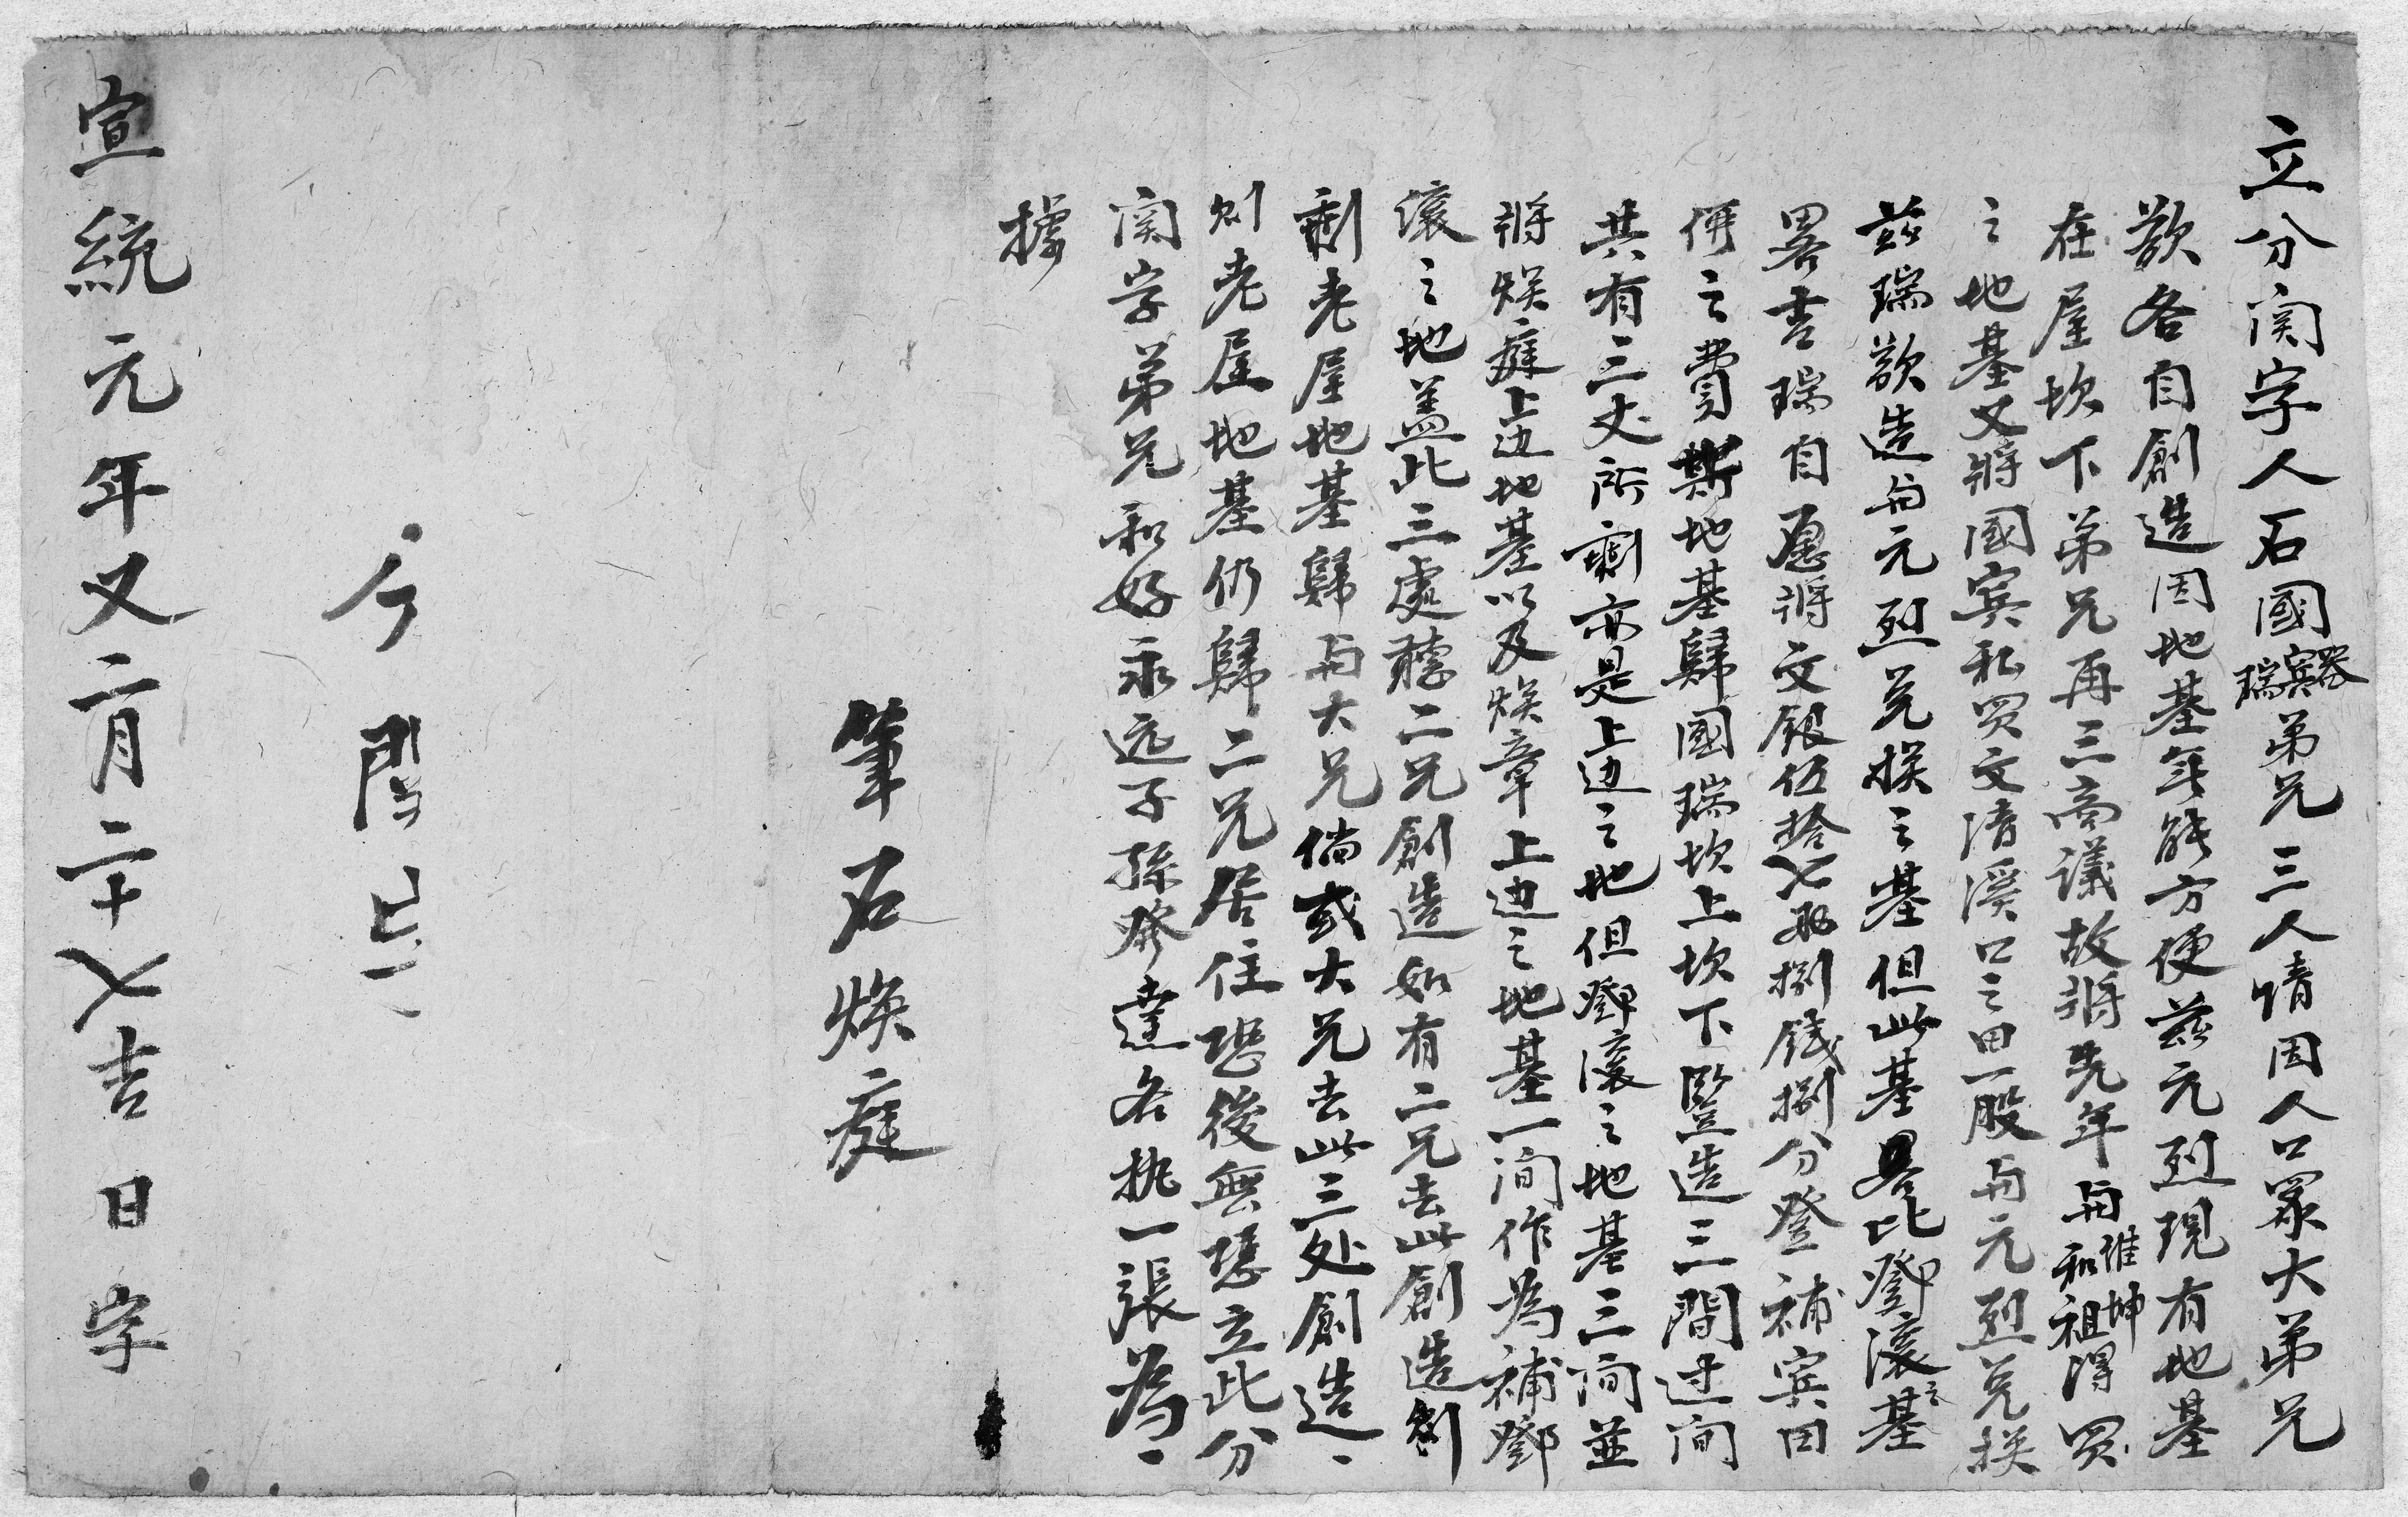 立分関字人石國器賓瑞弟兄三人情因人口眾大弟兄
欲各自創造因地基年能方便兹元烈現有地基
在屋坎下弟兄再三商議故將先年與惟坤和祖得買
之地基又將國賓私買文清溪口之田一股與元烈兑換
兹瑞欲造與元烈兑換之基但此基畧比鄧滾之基
畧吉瑞自愿將文銀伍拾七両捌錢捌分登補賓田
併之費斯地基歸國瑞坎上坎下豎造三間過间
共有三丈所剩亦是上边之地但鄧滾之地基三间並
將焕庭上边地基以及焕章上边之地基一间作為補鄧
滾之地盖此三處聽二兄創造如有二兄去此創造則
剩老屋地基歸與大兄倘或大兄去此三处創造、
則老屋地基仍歸二兄居住恐後無憑立此分
関字弟兄和好永远子孫發達各执一張為、
據
筆石焕庭
今閏已一
宣統元年又二月二十七吉日字